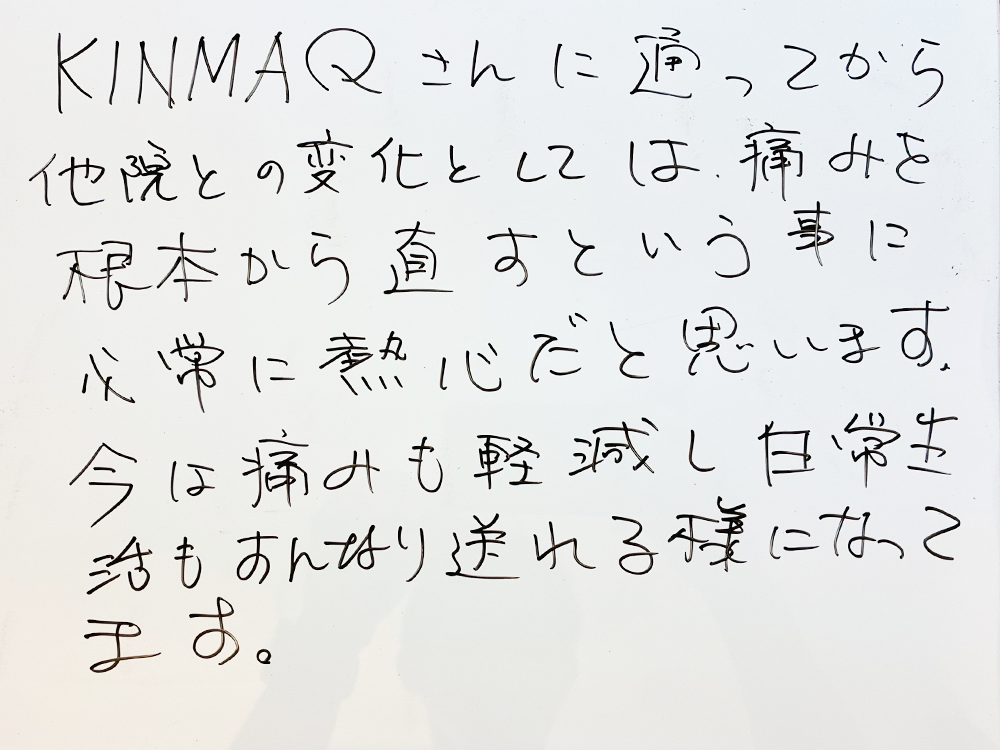 KINMAQさんに通ってから
他院との変化としては、痛みを
根本から直すという事に
心常に熱心だと思います。
今は痛みも軽減し日常生
活もすんなり送れる様になって
ます。